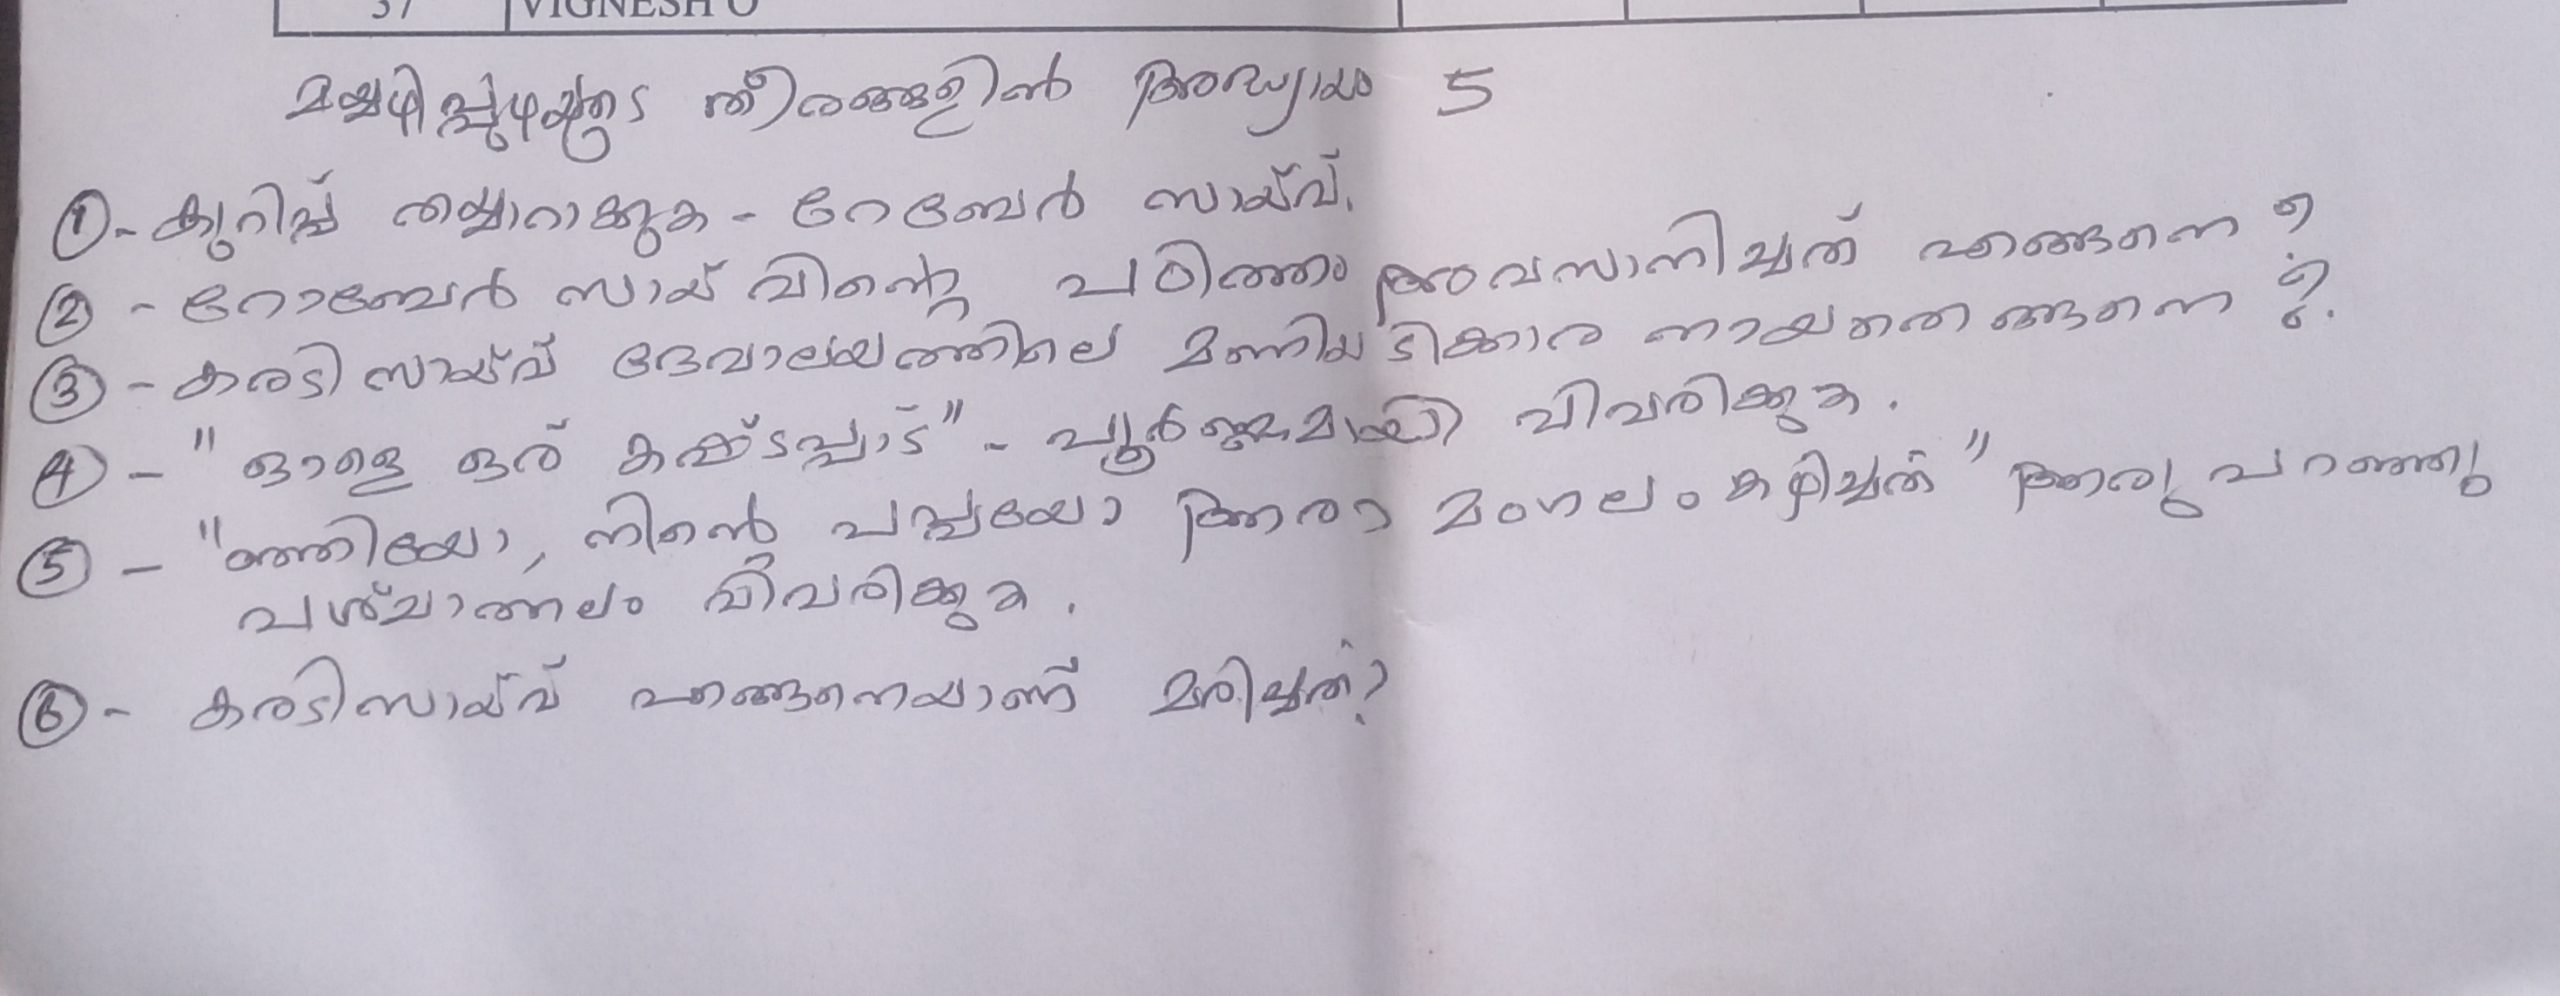 37 VIGNESH O
മയ്യഴിപ്പുഴയുടെ തീരങ്ങളിൽ അദ്ധ്യായം 5
①- കുറിപ്പ് തയ്യാറാക്കുക - റോബേർ സായ്‌വ്.
② - റോബേർ സായ്‌വിന്റെ പഠിത്തം അവസാനിച്ചത് എങ്ങനെ ?
③ - കരടി സായ്‌വ് ദേവാലയത്തിലെ മണിയടിക്കാരനായതെങ്ങനെ ?.
④ - "ഓളെ ഒര് കഷ്ടപ്പാട്" - പൂർണ്ണമായി വിവരിക്കുക.
⑤ - "ഞ്ഞിയോ, നിന്റെ പപ്പയോ ആരാ മംഗലം കഴിച്ചത്" ആരു പറഞ്ഞു
പശ്ചാത്തലം വിവരിക്കുക.
⑥ - കരടിസായ്‌വ് എങ്ങനെയാണ് മരിച്ചത്?